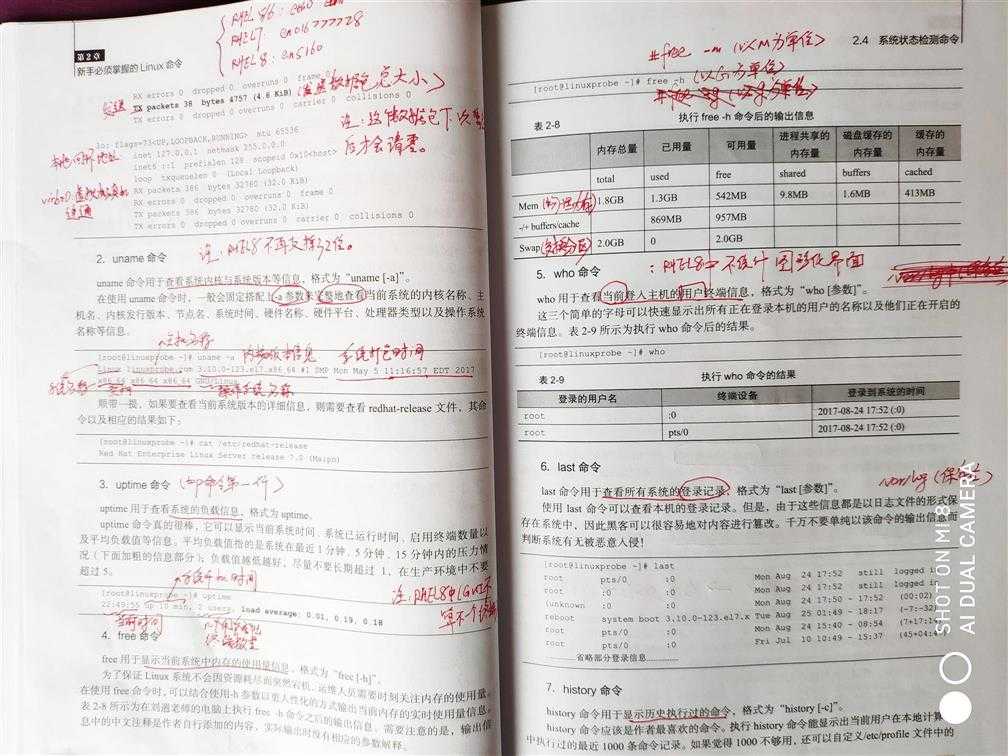 RHEL 7: eno16777728
RHEL 8: ens160
第2章
新手必须掌握的 Linux 命令
RX errors 0 dropped 0 overruns 0 frame
TX packets 38 bytes 4757 (4.6 KiB)
TX errors 0 dropped 0 overruns 0 carrier 0 collisions 0
lo: flags=73<UP,LOOPBACK,RUNNING> mtu 65536
inet 127.0.0.1 netmask 255.0.0.0
inet6 ::1 prefixlen 128 scopeid 0x10<host>
loop txqueuelen 0 (Local Loopback)
RX packets 386 bytes 32780 (32.0 KiB)
RX errors 0 dropped 0 overruns 0 frame 0
TX packets 386 bytes 32780 (32.0 KiB)
TX errors 0 dropped 0 overruns 0 carrier 0 collisions 0
注:RHEL8不再支持32位。
2. uname 命令
uname 命令用于查看系统内核与系统版本等信息，格式为“uname [-a]”。
在使用 uname 命令时，一般会固定搭配上-a 参数来完整地查看当前系统的内核名称、主
机名、内核发行版本、节点名、系统时间、硬件名称、硬件平台、处理器类型以及操作系统
名称等信息。
内核版本信息 系统打包时间
[root@linuxprobe ~]# uname -a
Linux linuxprobe.com 3.10.0-123.el7.x86_64 #1 SMP Mon May 5 11:16:57 EDT 2017
x86_64 x86_64 x86_64 GNU/Linux
顺带一提，如果要查看当前系统版本的详细信息，则需要查看 redhat-release 文件，其命
令以及相应的结果如下：
[root@linuxprobe ~]# cat /etc/redhat-release
Red Hat Enterprise Linux Server release 7.0 (Maipo)
3. uptime 命令 (top命令第一行)
uptime 用于查看系统的负载信息，格式为 uptime。
uptime 命令真的很棒，它可以显示当前系统时间、系统已运行时间、启用终端数量以
及平均负载值等信息。平均负载值指的是系统在最近 1 分钟、5 分钟、15 分钟内的压力情
况（下面加粗的信息部分）；负载值越低越好，尽量不要长期超过 1，在生产环境中不要
超过 5。
[root@linuxprobe ~]# uptime
22:49:55 up 10 min, 2 users, load average: 0.01, 0.19, 0.18
当前时间
4. free 命令
free 用于显示当前系统中内存的使用量信息，格式为“free [-h]”。
为了保证 Linux 系统不会因资源耗尽而突然宕机，运维人员需要时刻关注内存的使用量。
在使用 free 命令时，可以结合使用-h 参数以更人性化的方式输出当前内存的实时使用量信息。
表 2-8 所示为在刘遄老师的电脑上执行 free -h 命令之后的输出信息。需要注意的是，输出信
息中的中文注释是作者自行添加的内容，实际输出时没有相应的参数解释。
#free -m (以M为单位)
2.4 系统状态检测命令
[root@linuxprobe ~]# free -h (以G为单位)
表 2-8 执行 free -h 命令后的输出信息
内存总量 已用量 可用量 进程共享的内存量 磁盘缓存的内存量 缓存的内存量
total used free shared buffers cached
Mem 1.8GB 1.3GB 542MB 9.8MB 1.6MB 413MB
-/+ buffers/cache 869MB 957MB
Swap(交换分区) 2.0GB 0 2.0GB
5. who 命令
who 用于查看当前登入主机的用户终端信息，格式为“who [参数]”。
这三个简单的字母可以快速显示出所有正在登录本机的用户的名称以及他们正在开启的
终端信息。表 2-9 所示为执行 who 命令后的结果。
[root@linuxprobe ~]# who
表 2-9 执行 who 命令的结果
登录的用户名 终端设备 登录到系统的时间
root :0 2017-08-24 17:52 (:0)
root pts/0 2017-08-24 17:52 (:0)
6. last 命令
last 命令用于查看所有系统的登录记录，格式为“last [参数]”。
使用 last 命令可以查看本机的登录记录。但是，由于这些信息都是以日志文件的形式保
存在系统中，因此黑客可以很容易地对内容进行篡改。千万不要单纯以该命令的输出信息而
判断系统有无被恶意入侵！
[root@linuxprobe ~]# last
root pts/0 :0 Mon Aug 24 17:52 still logged in
root :0 :0 Mon Aug 24 17:52 still logged in
(unknown :0 :0 Mon Aug 24 17:50 - 17:52 (00:02)
reboot system boot 3.10.0-123.el7.x Tue Aug 25 01:49 - 18:17 (-7:-32)
root pts/0 :0 Mon Aug 24 15:40 - 08:54 (7+17:14
root pts/0 :0 Fri Jul 10 10:49 - 15:37 (45+04:4
………省略部分登录信息………
7. history 命令
history 命令用于显示历史执行过的命令，格式为“history [-c]”。
history 命令应该是作者最喜欢的命令。执行 history 命令能显示出当前用户在本地计算
中执行过的最近 1000 条命令记录。如果觉得 1000 不够用，还可以自定义/etc/profile 文件中的
SHOT ON MI 8
AI DUAL CAMERA